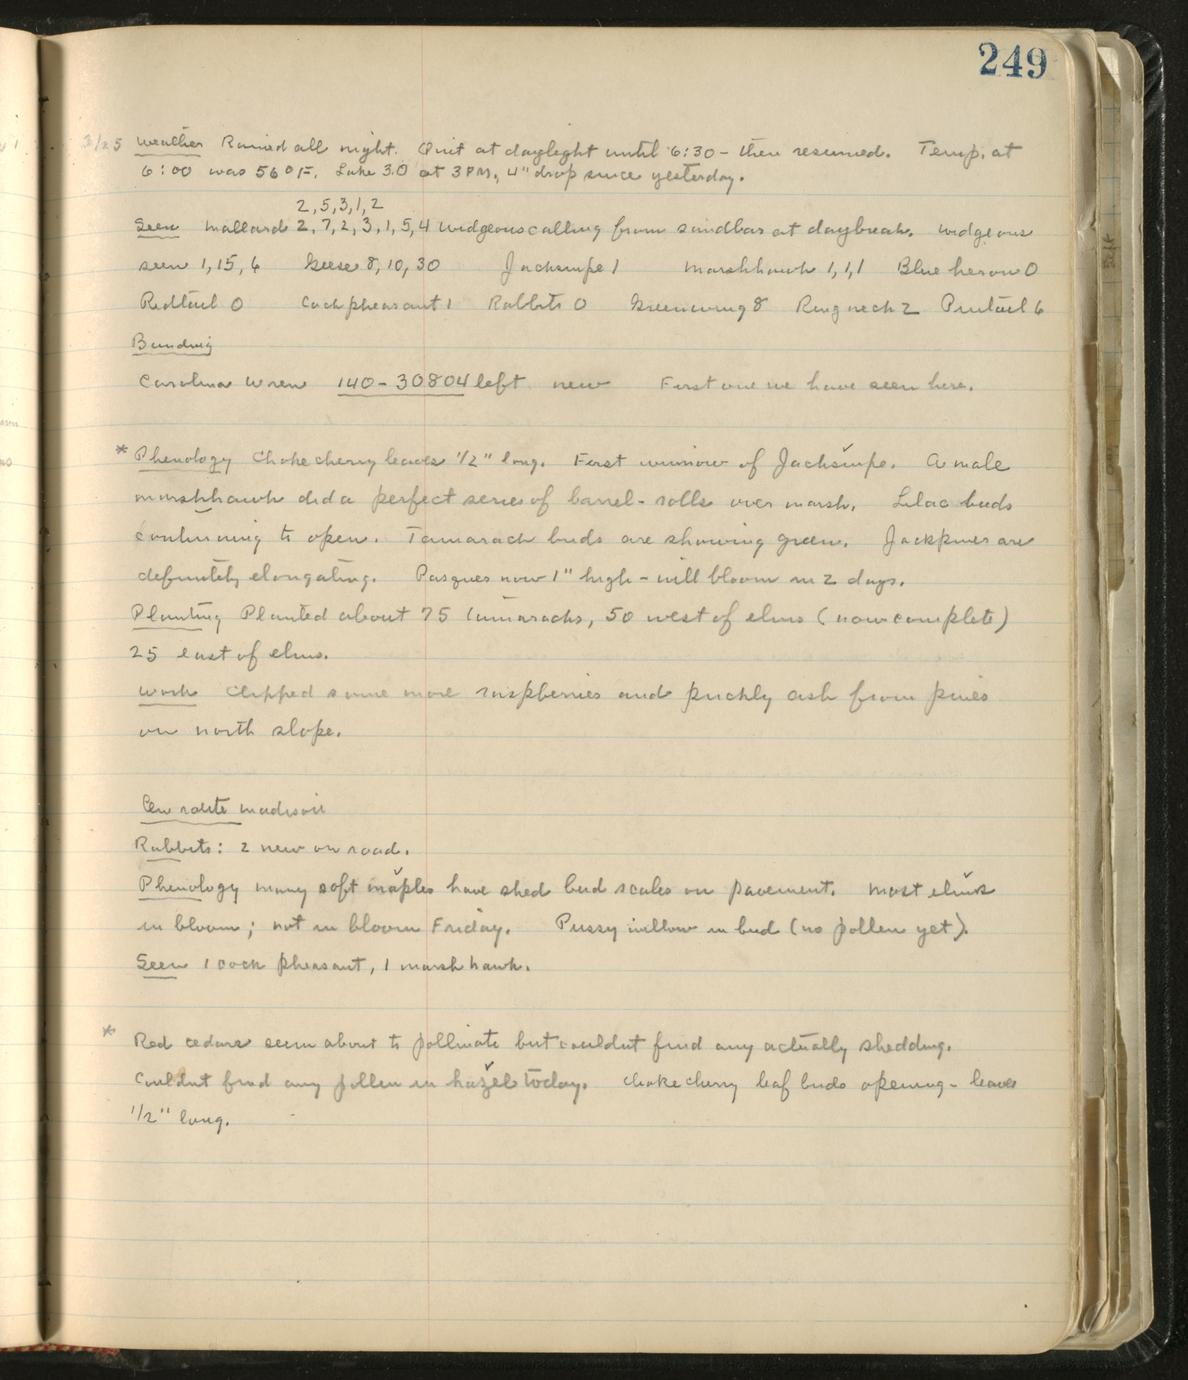 249
3/25 Weather Rained all night. Quit at daylight until 6:30 - then resumed. Temp. at
6:00 was 56°F. Lake 3.0 at 3PM, 4" drop since yesterday.
2,5,3,1,2
Seen Mallard 2,7,2,3,1,5,4 Widgeons calling from sandbar at daybreak. Widgeons
seen 1,15,6 Geese 8,10,30 Jacksnipe 1 Marshhawk 1,1,1 Blue heron 0
Redtail 0 Cock pheasant 1 Rabbits 0 Greenwing 8 Ringneck 2 Pintail 6
Banding
Carolina Wren 140-30804 left new First one we have seen here.
* Phenology Chokecherry leaves 1/2" long. First winnow of Jacksnipe. A male
marshhawk did a perfect series of barrel-rolls over marsh. Lilac buds
continuing to open. Tamarack buds are showing green. Jackpines are
definitely elongating. Pasques now 1" high - will bloom in 2 days.
Planting Planted about 75 tamaracks, 50 west of elms (now complete)
25 east of elms.
Work Clipped some more raspberries and prickly ash from pines
on north slope.
En route Madison
Rabbits: 2 new on road.
Phenology Many soft maples have shed bud scales on pavement. Most elms
in bloom; not in bloom Friday. Pussy willow in bud (no pollen yet).
Seen 1 cock pheasant, 1 marsh hawk.
* Red cedars seem about to pollinate but couldnt find any actually shedding.
Couldnt find any pollen in hazel today. Chokecherry leaf buds opening - leaves
1/2" long.